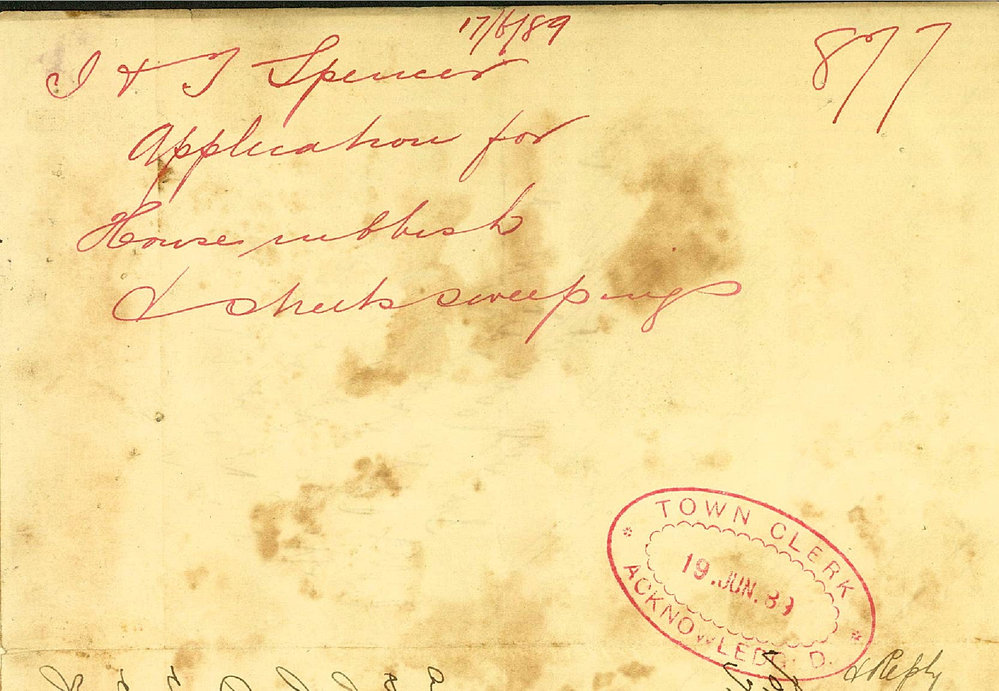 17/6/89
877
J & J Spencer
Application for
House rubbish
& streets sweepings
TOWN CLERK
19.JUN.89
ACKNOWLEDGED.
& Reply